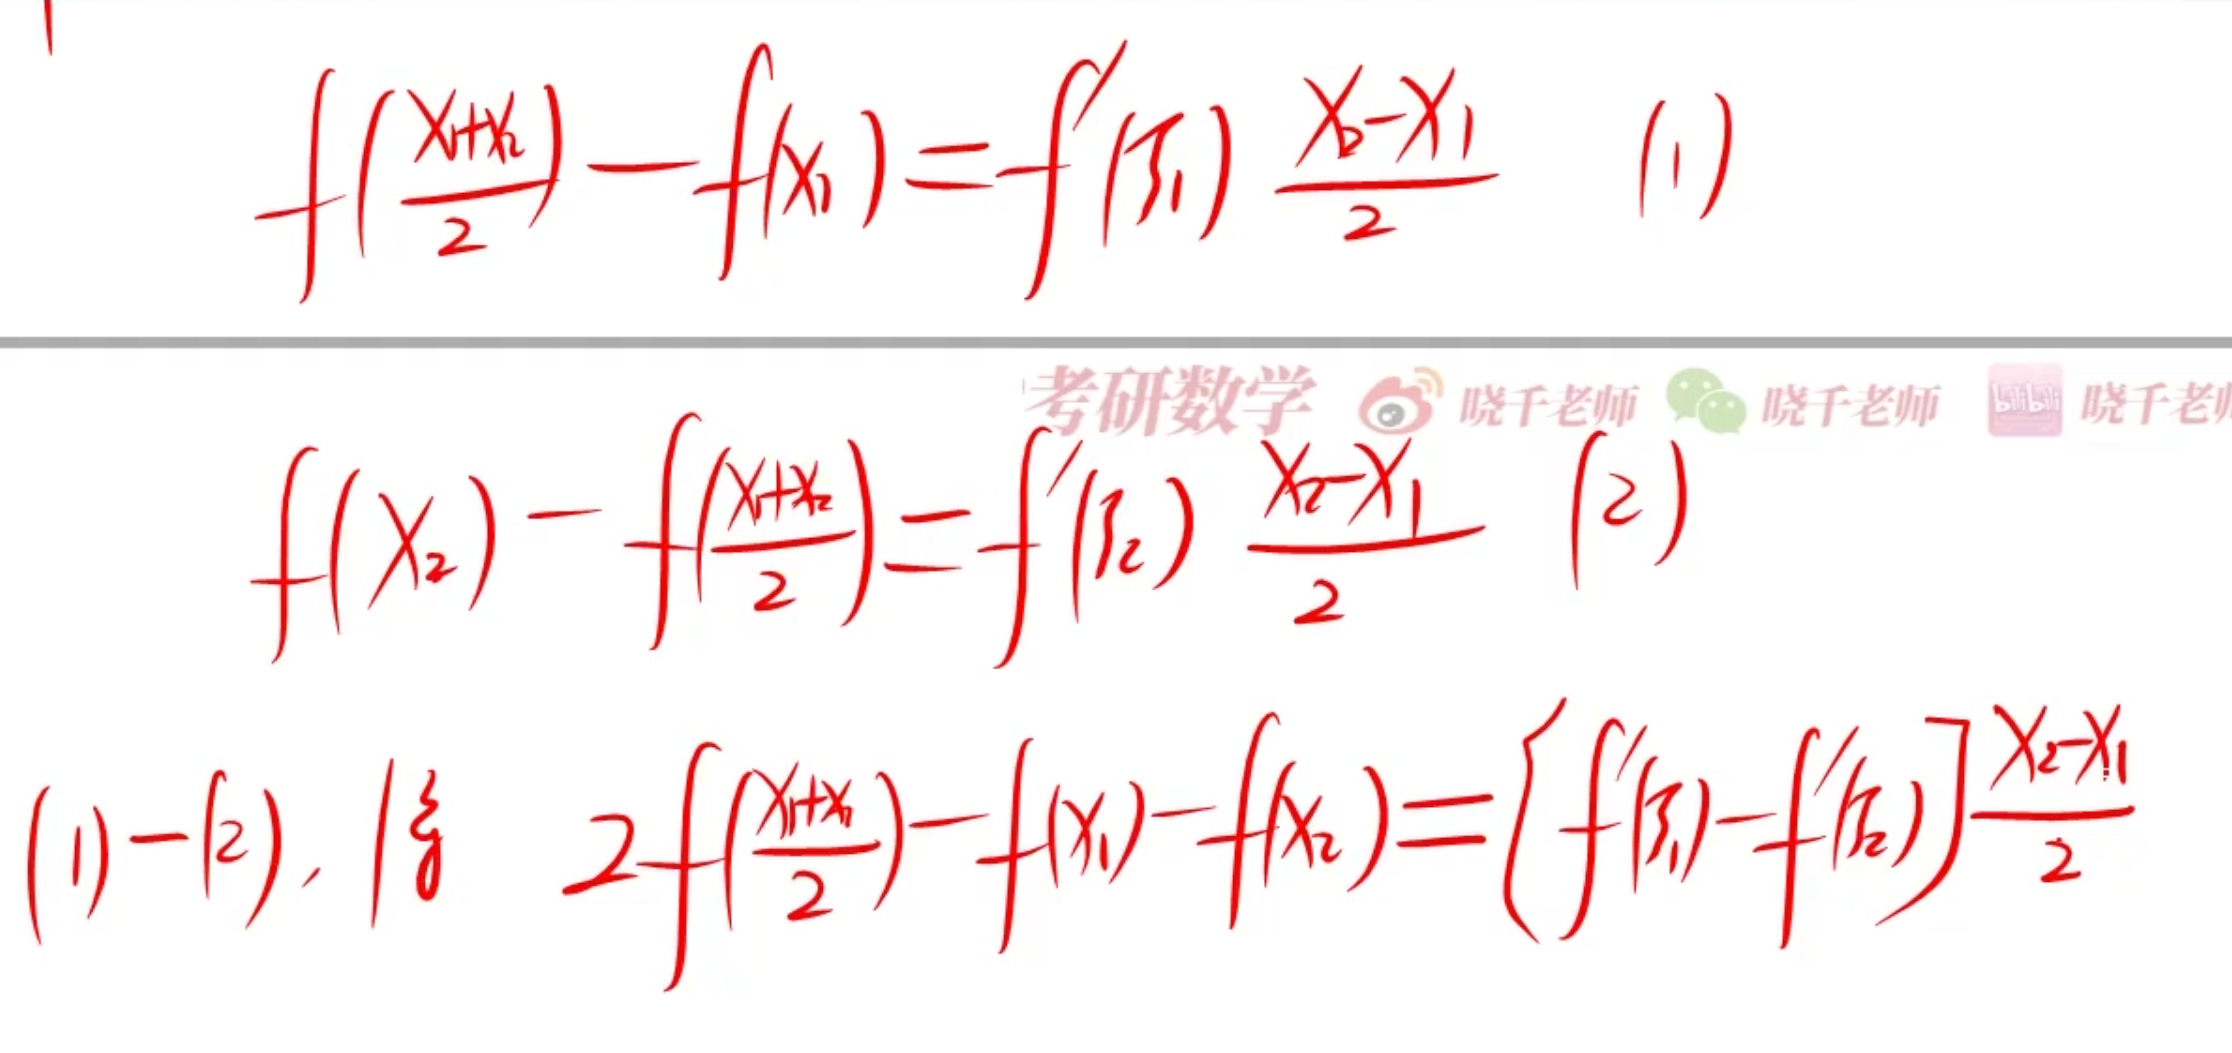 f((x₁+x₂)/2) − f(x₁) = f′(ξ₁) (x₂−x₁)/2 (1)
考研数学 晓千老师 晓千老师 bilibili 晓千老师
f(x₂) − f((x₁+x₂)/2) = f′(ξ₂) (x₂−x₁)/2 (2)
(1)−(2), 得 2f((x₁+x₂)/2) − f(x₁) − f(x₂) = [f′(ξ₁) − f′(ξ₂)] (x₂−x₁)/2